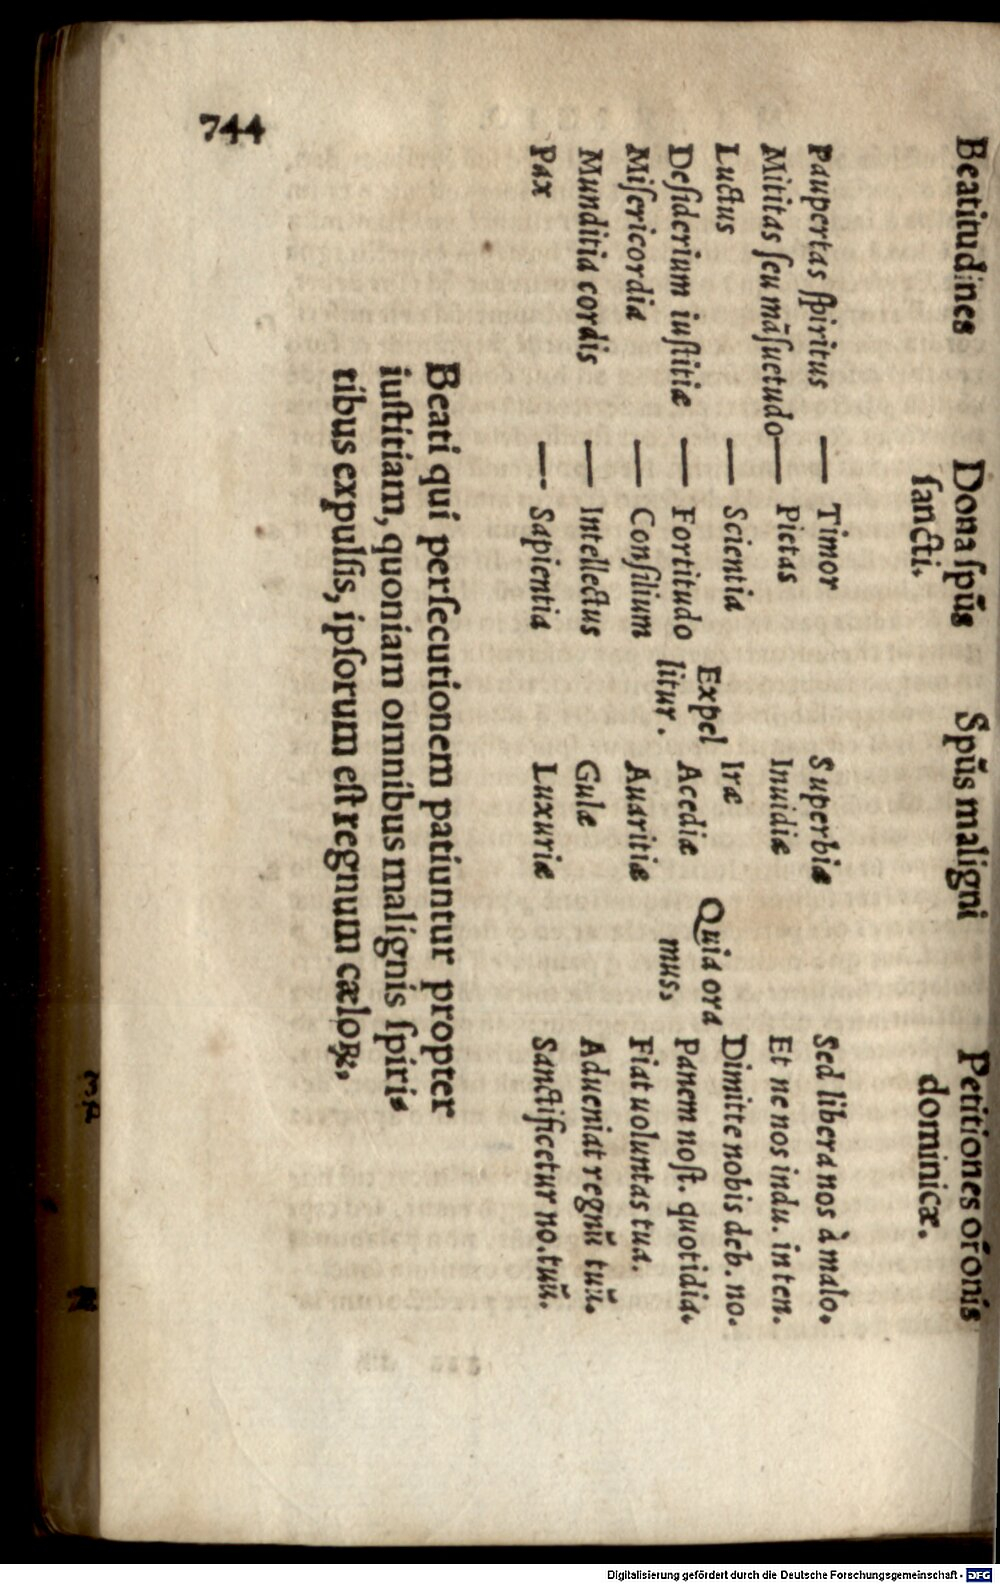 744
Beatitudines Dona ſpūs Spūs maligni Petitiones orōnis
ſancti. dominicæ.
Paupertas ſpiritus — Timor Superbiæ Sed libera nos à malo.
Mititas ſeu māſuetudo — Pietas Inuidiæ Et ne nos indu. in ten.
Luctus — Scientia Iræ Dimitte nobis deb. no.
Expel Quia ora
Deſiderium iuſtitiæ — Fortitudo Acediæ Panem noſt. quotidia.
litur. mus,
Miſericordia — Conſilium Auaritiæ Fiat uoluntas tua.
Munditia cordis — Intellectus Gulæ Adueniat regnū tuū.
Pax — Sapientia Luxuriæ Sanctificetur no. tuū.
Beati qui perſecutionem patiuntur propter
iuſtitiam, quoniam omnibus malignis ſpiri-
tibus expulſis, ipſorum eſt regnum cæloꝶ.
Digitalisierung gefördert durch die Deutsche Forschungsgemeinschaft - DFG